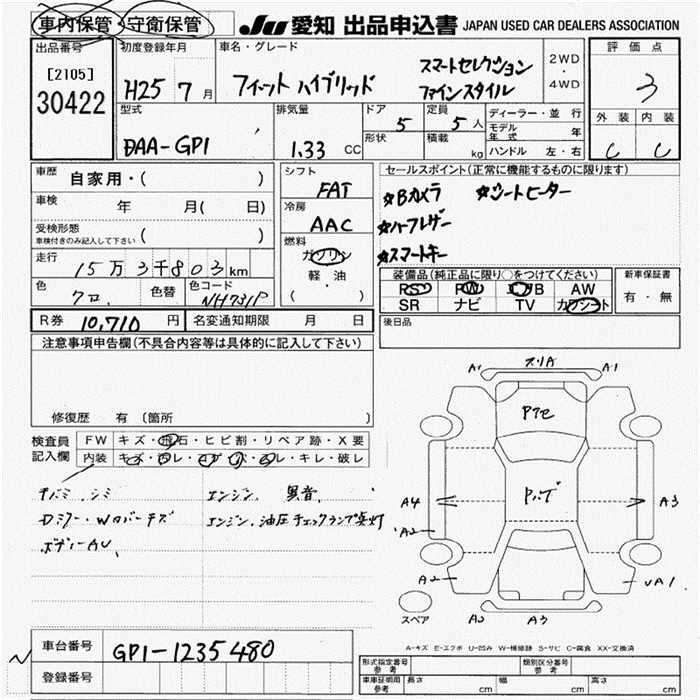 車内保管・守衛保管
JU 愛知 出品申込書 JAPAN USED CAR DEALERS ASSOCIATION
出品番号 初度登録年月 車名・グレード 評価点
[2105]
30422
H25 7月
フィット ハイブリッド
スマートセレクション
ファインスタイル
2WD
・
4WD
3
外装 内装
C C
型式 排気量 ドア 定員 ディーラー・並行
DAA-GP1 1.33 CC 5 5人
形状 積載 kg
モデル年式 年
ハンドル 左・右
車歴 自家用・( )
車検 年 月( 日)
受検形態
車検付きのみ記入して下さい ( )
走行 15万3千803km
色 クロ 色替 色コード NH731P
シフト FAT
冷房 AAC
燃料 ガソリン
軽・油
( )
セールスポイント(正常に機能するものに限ります)
☆Bカメラ ☆シートヒーター
☆ハーフレザー
☆スマートキー
装備品(純正品に限り○をつけてください) 新車保証書
PS PW AB AW
SR ナビ TV カワシート
有・無
R券 10,710円 名変通知期限 月 日
後日品
注意事項申告欄(不具合内容等は具体的に記入して下さい)
修復歴 有(箇所 )
検査員記入欄
FW キズ・飛石・ヒビ割・リペア跡・X要
内装 キズ・汚レ・コゲ・穴・スレ・キレ・破レ
シミ エンジン 異音
Dミラー・Wのバイザ エンジン、油圧チェックランプ点灯
ボディーAU、
スリA
A1 A1
Pアセ
Pハゲ
A4 A3
A2
A2 UA1
スペア
A2 A3
A-キズ E-エクボ U-凹み W-補修跡 S-サビ C-腐食 XX-交換済
車台番号 GP1-1235480
登録番号
形式指定番号 参考 類別区分番号 参考
車庫証明用 参考 長さ cm 幅 cm 高さ cm